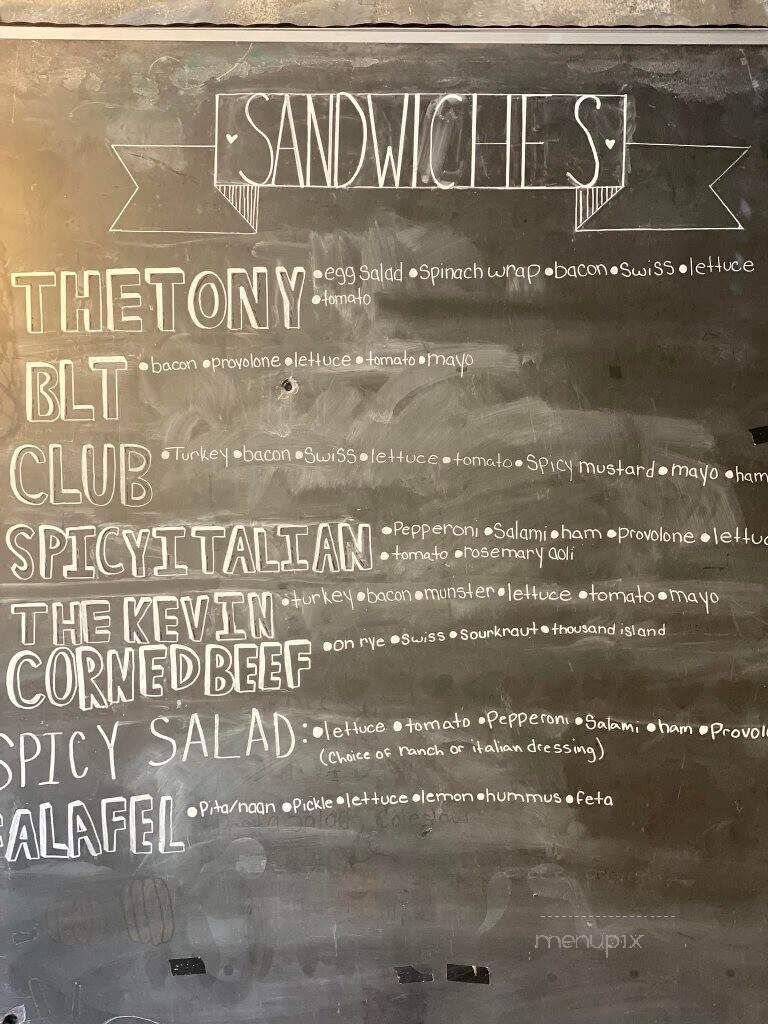 SANDWICHES
THE TONY •egg salad •spinach wrap •bacon •swiss •lettuce
•tomato
BLT •bacon •provolone •lettuce •tomato •mayo
CLUB •Turkey •bacon •Swiss •lettuce •tomato •Spicy mustard •mayo •ham
SPICY ITALIAN •Pepperoni •Salami •ham •provolone •lettuc
•tomato •rosemary aoli
THE KEVIN •turkey •bacon •munster •lettuce •tomato •mayo
CORNED BEEF •on rye •swiss •sourkraut •thousand island
SPICY SALAD: •lettuce •tomato •Pepperoni •Salami •ham •Provol
(Choice of ranch or italian dressing)
FALAFEL •Pita/naan •Pickle •lettuce •lemon •hummus •feta
menupix